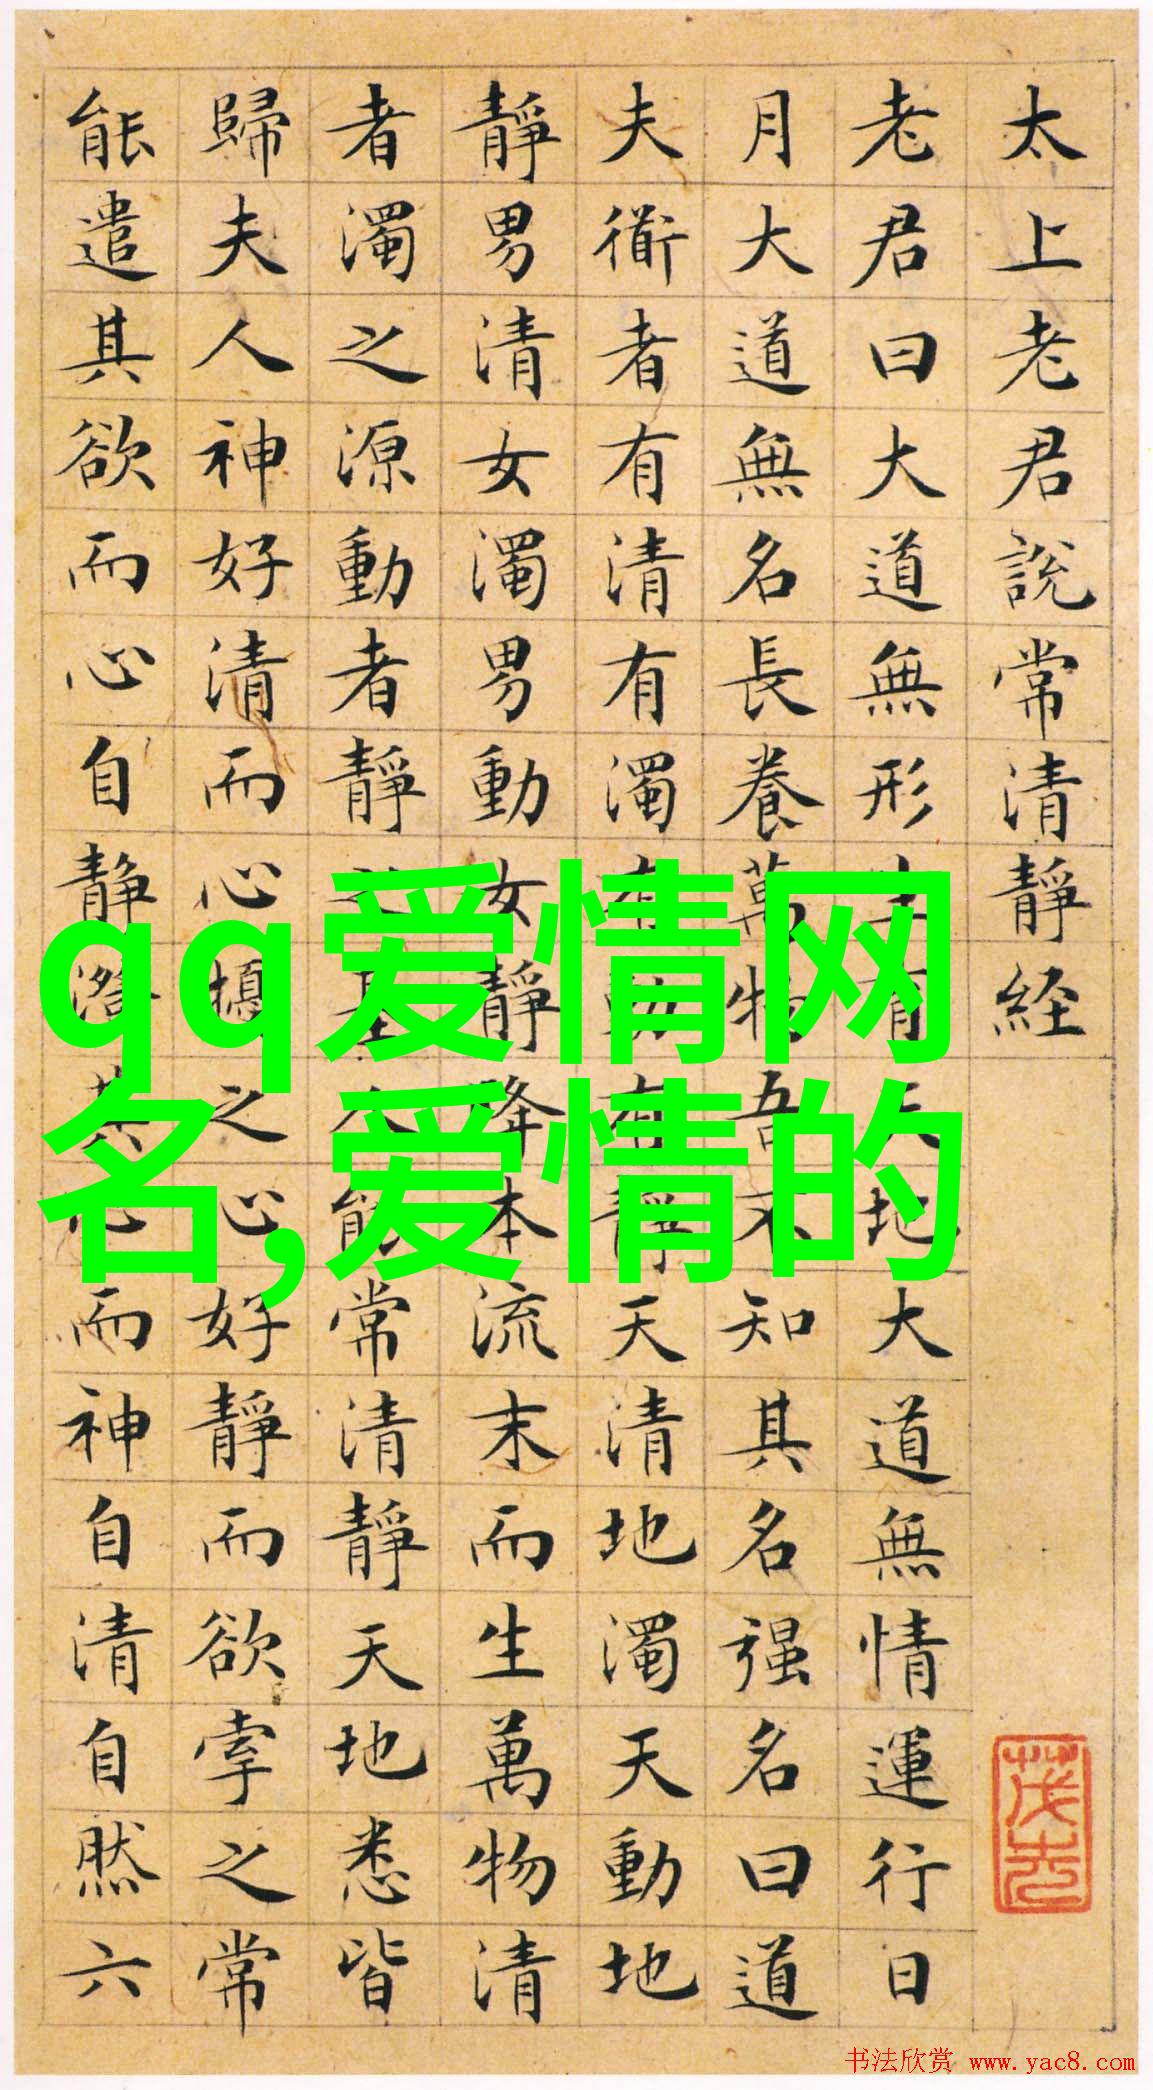 太上老君說常清靜経
老君曰大道無形生育天地大道無情運行日
月大道無名長養萬物吾不知其名强名曰道
夫衜者有清有濁有動有靜天清地濁天動地
靜男清女濁男動女靜降本流末而生萬物清
者濁之源動者靜之基人能常清靜天地悉皆
歸夫人神好清而心擾之心好靜而欲牽之常
能遣其欲而心自靜澄其心而神自清自然六
qq爱情网
名,爱情的
书法欣赏 www.yac8.com